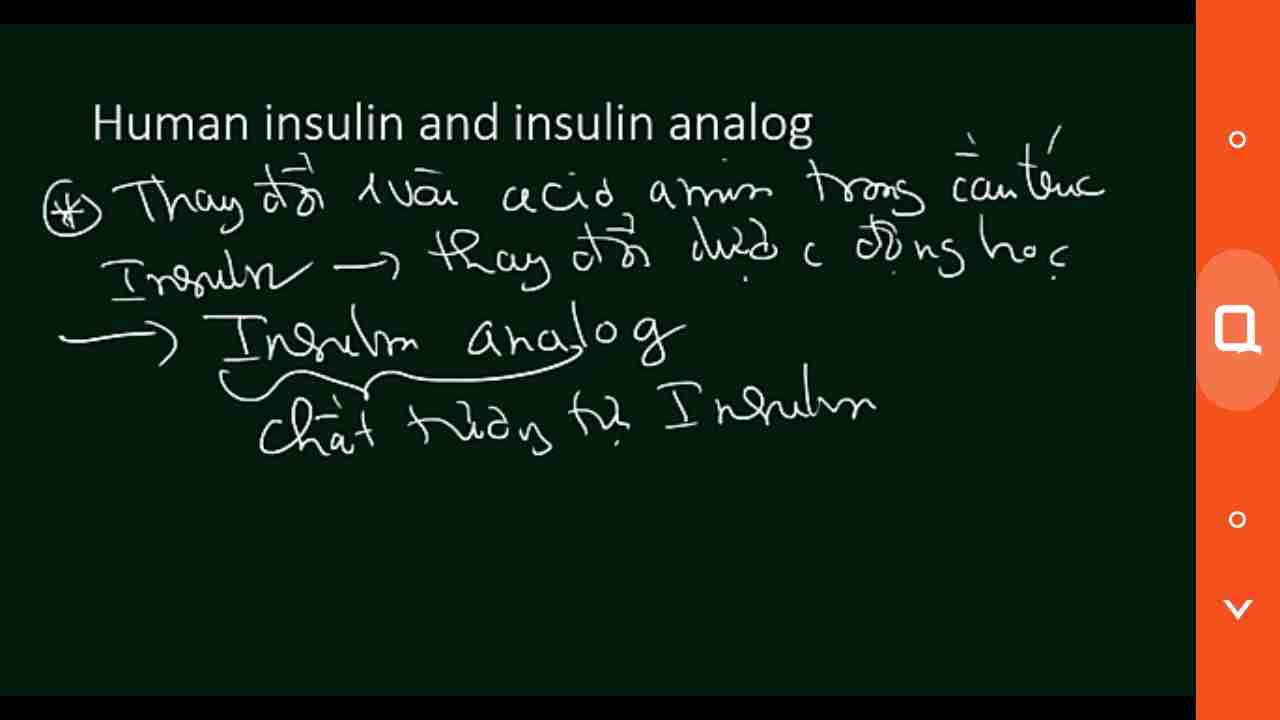 Human insulin and insulin analog
* Thay đổi 1 vài acid amin trong cấu trúc
Insulin → thay đổi dược động học
→ Insulin analog
chất tương tự Insulin